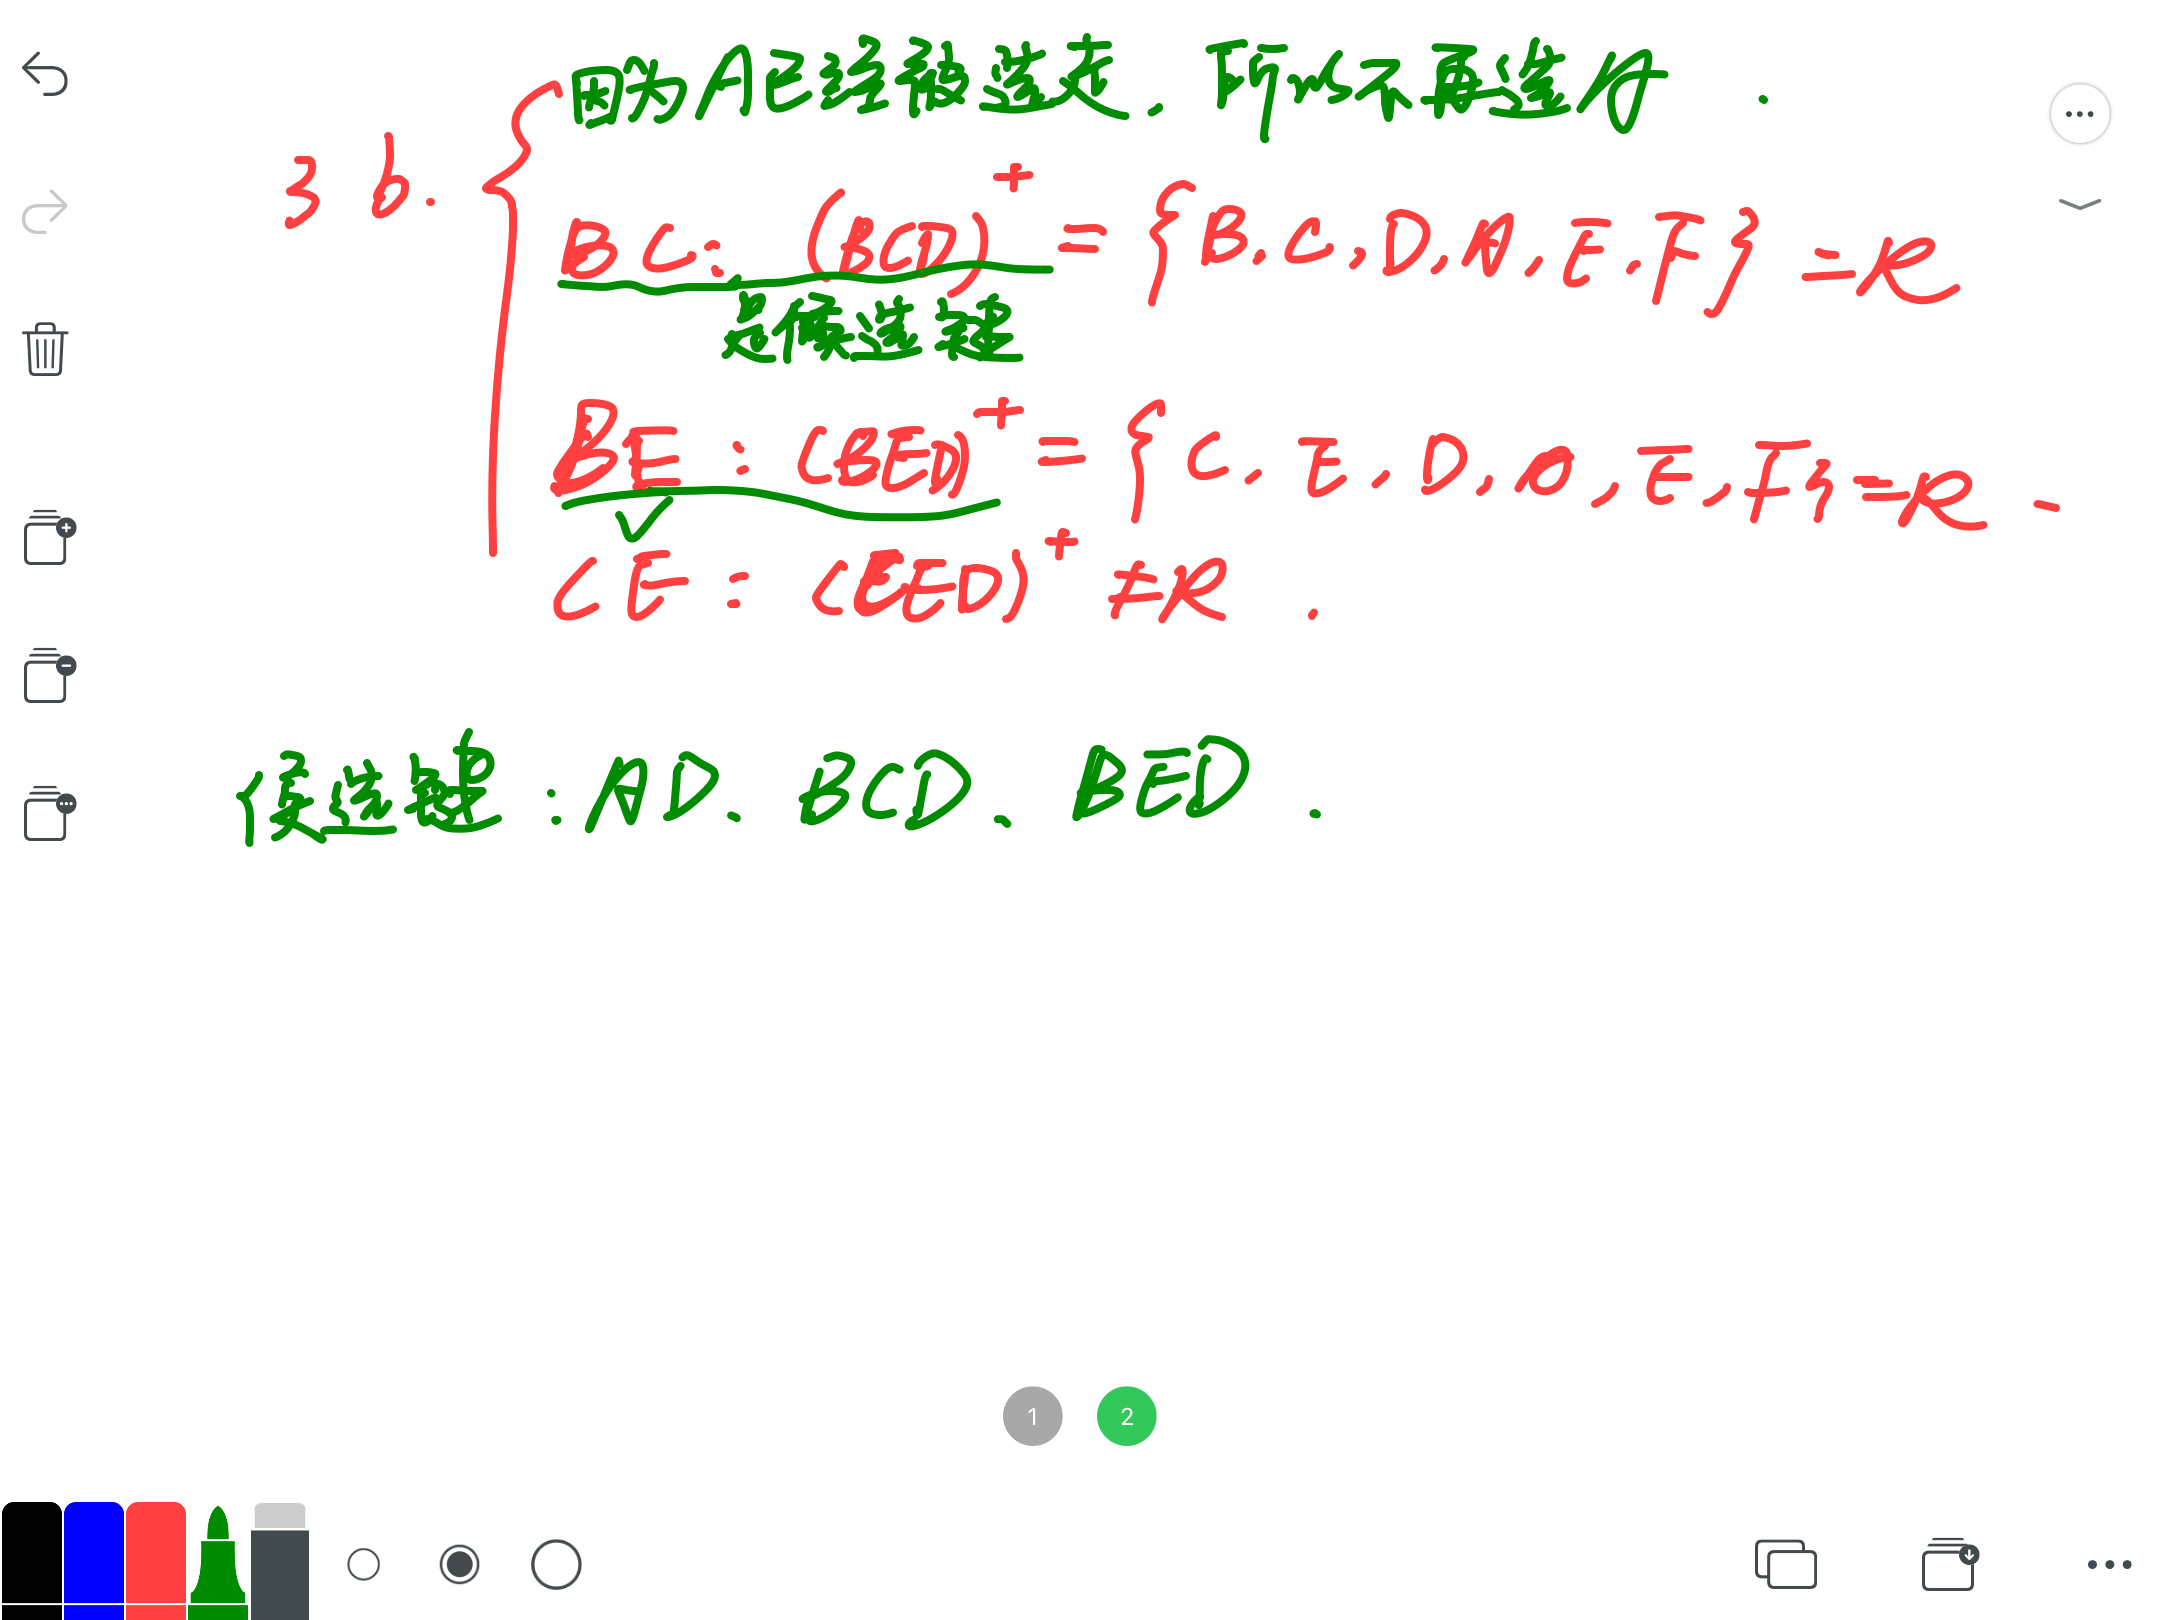 因为A已经被选走，所以不再选A.
3 b.
BC: (BCD)⁺ = {B,C,D,A,E,F} = R
是候选键
BE: (BED)⁺ = {C,E,D,A,E,F} = R.
CE: (CED)⁺ ≠ R.
候选键:AD、BCD、BED.
1 2